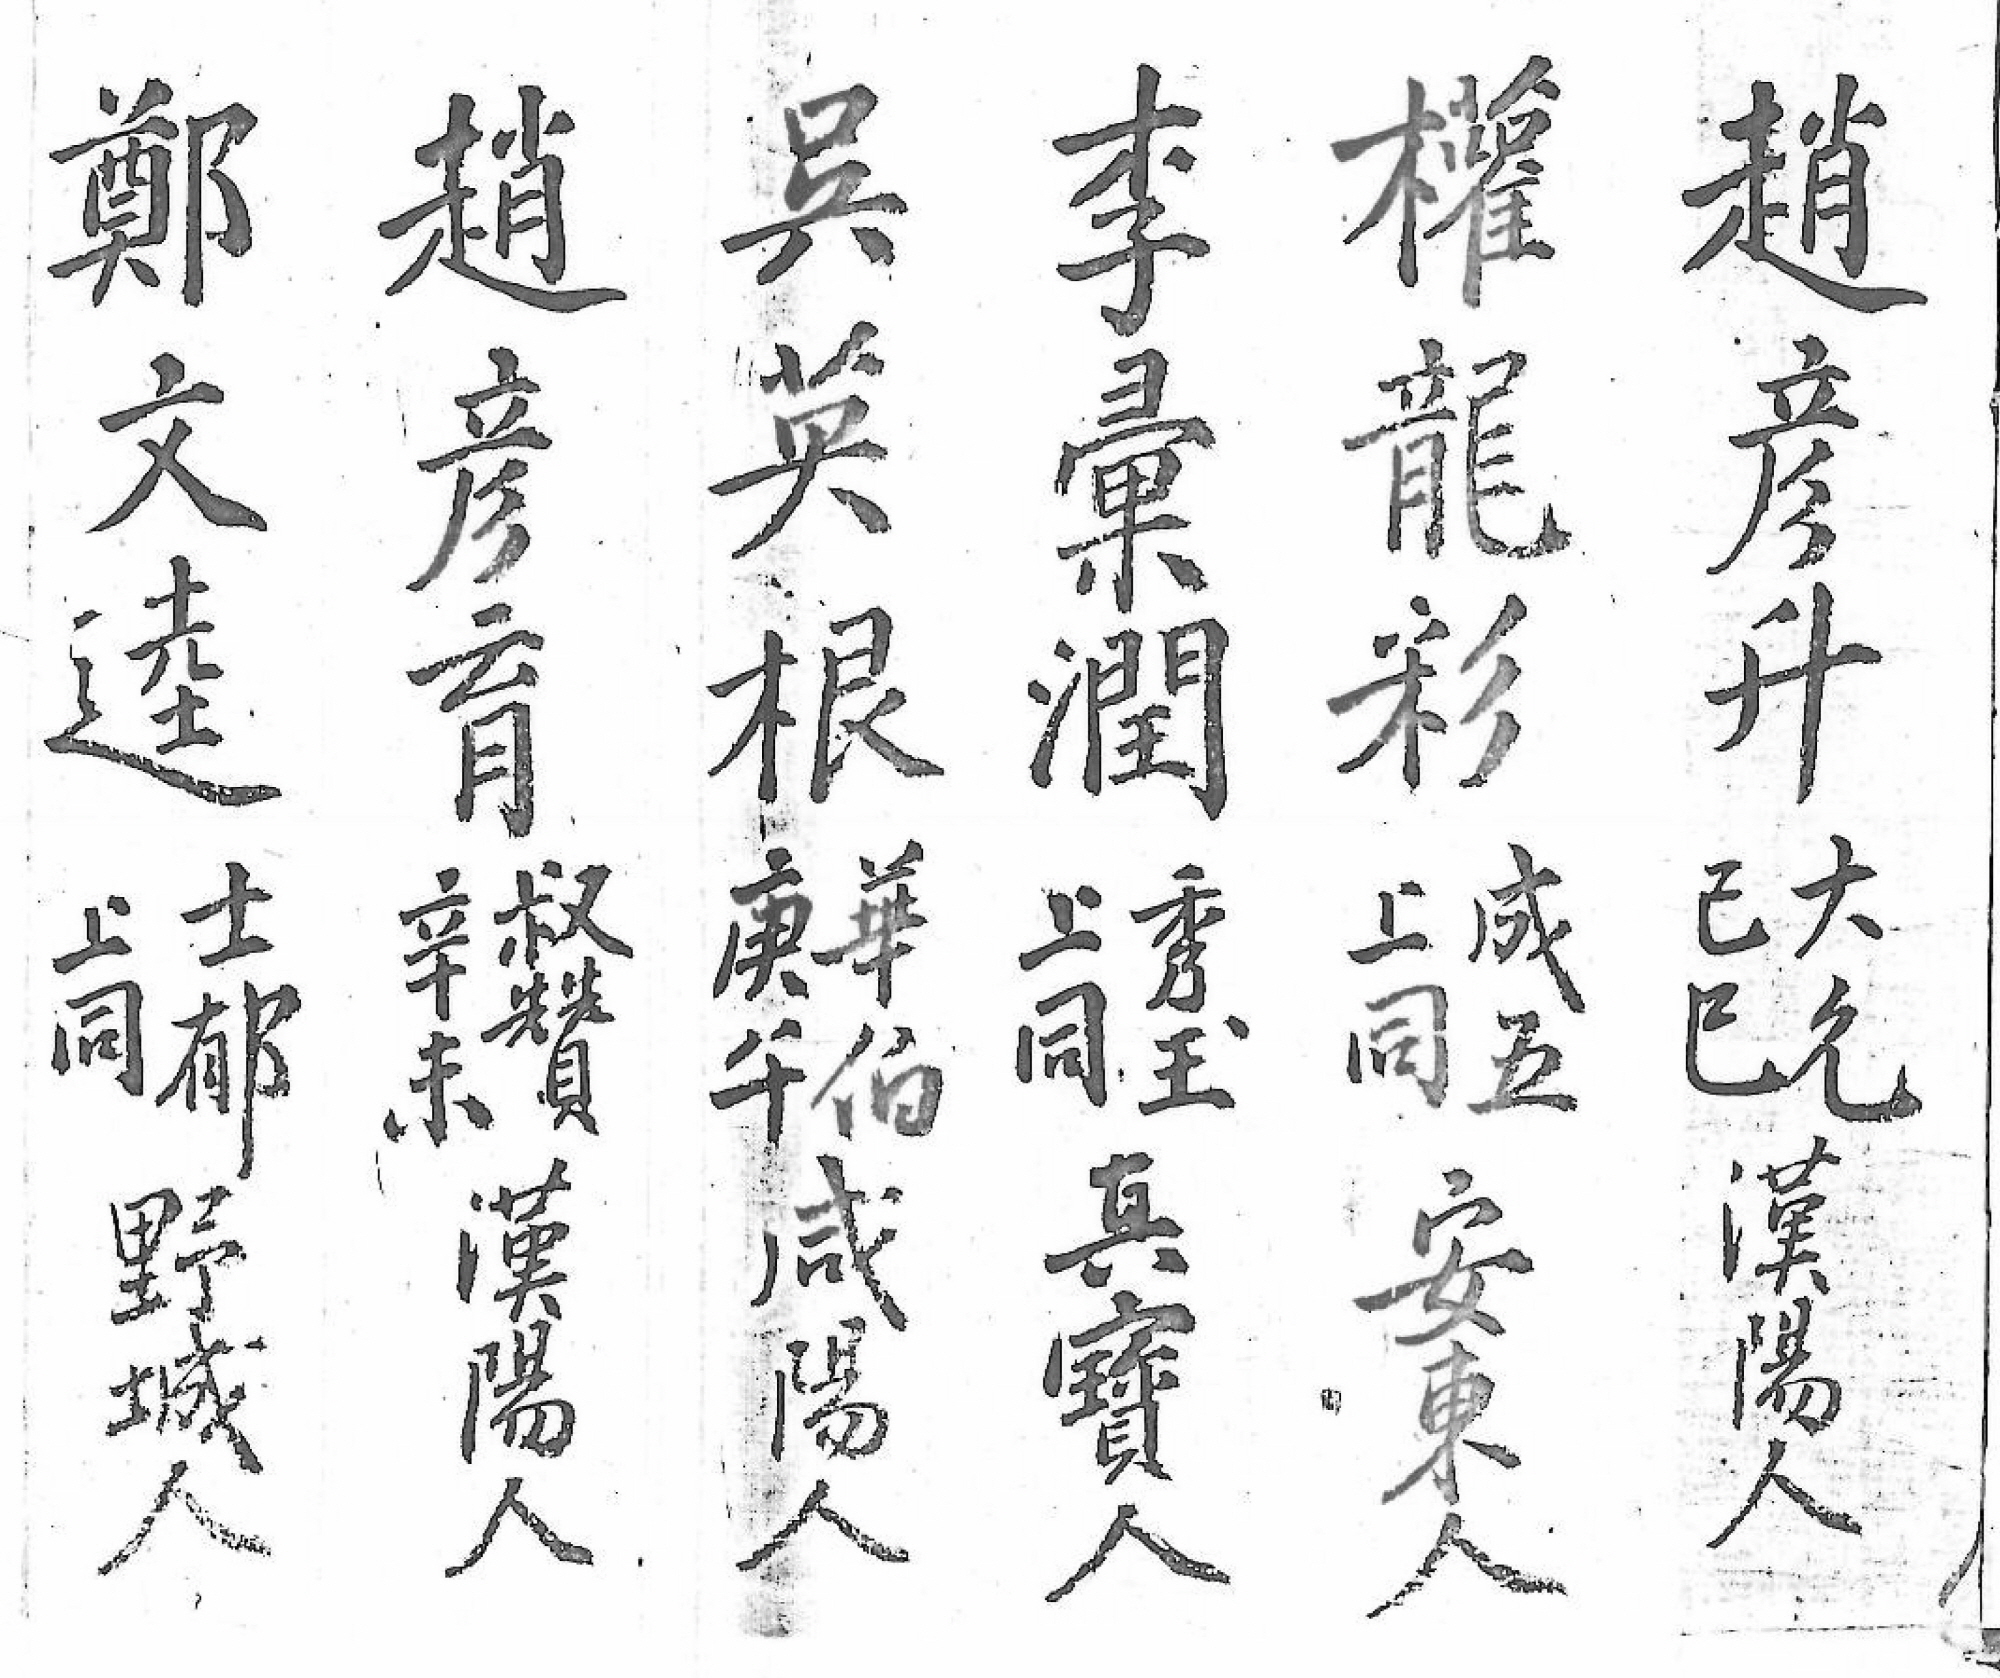 趙彦升 大允 己巳 漢陽人
權龍彩 成五 上同 安東人
李彙潤 秀玉 上同 真寶人
吳英根 華伯 庚午 咸陽人
趙彦育 叔贊 辛未 漢陽人
鄭文逵 士郁 上同 野城人